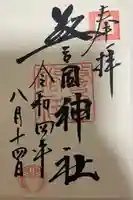 奉拝
國神社
令和四年
八月十四日